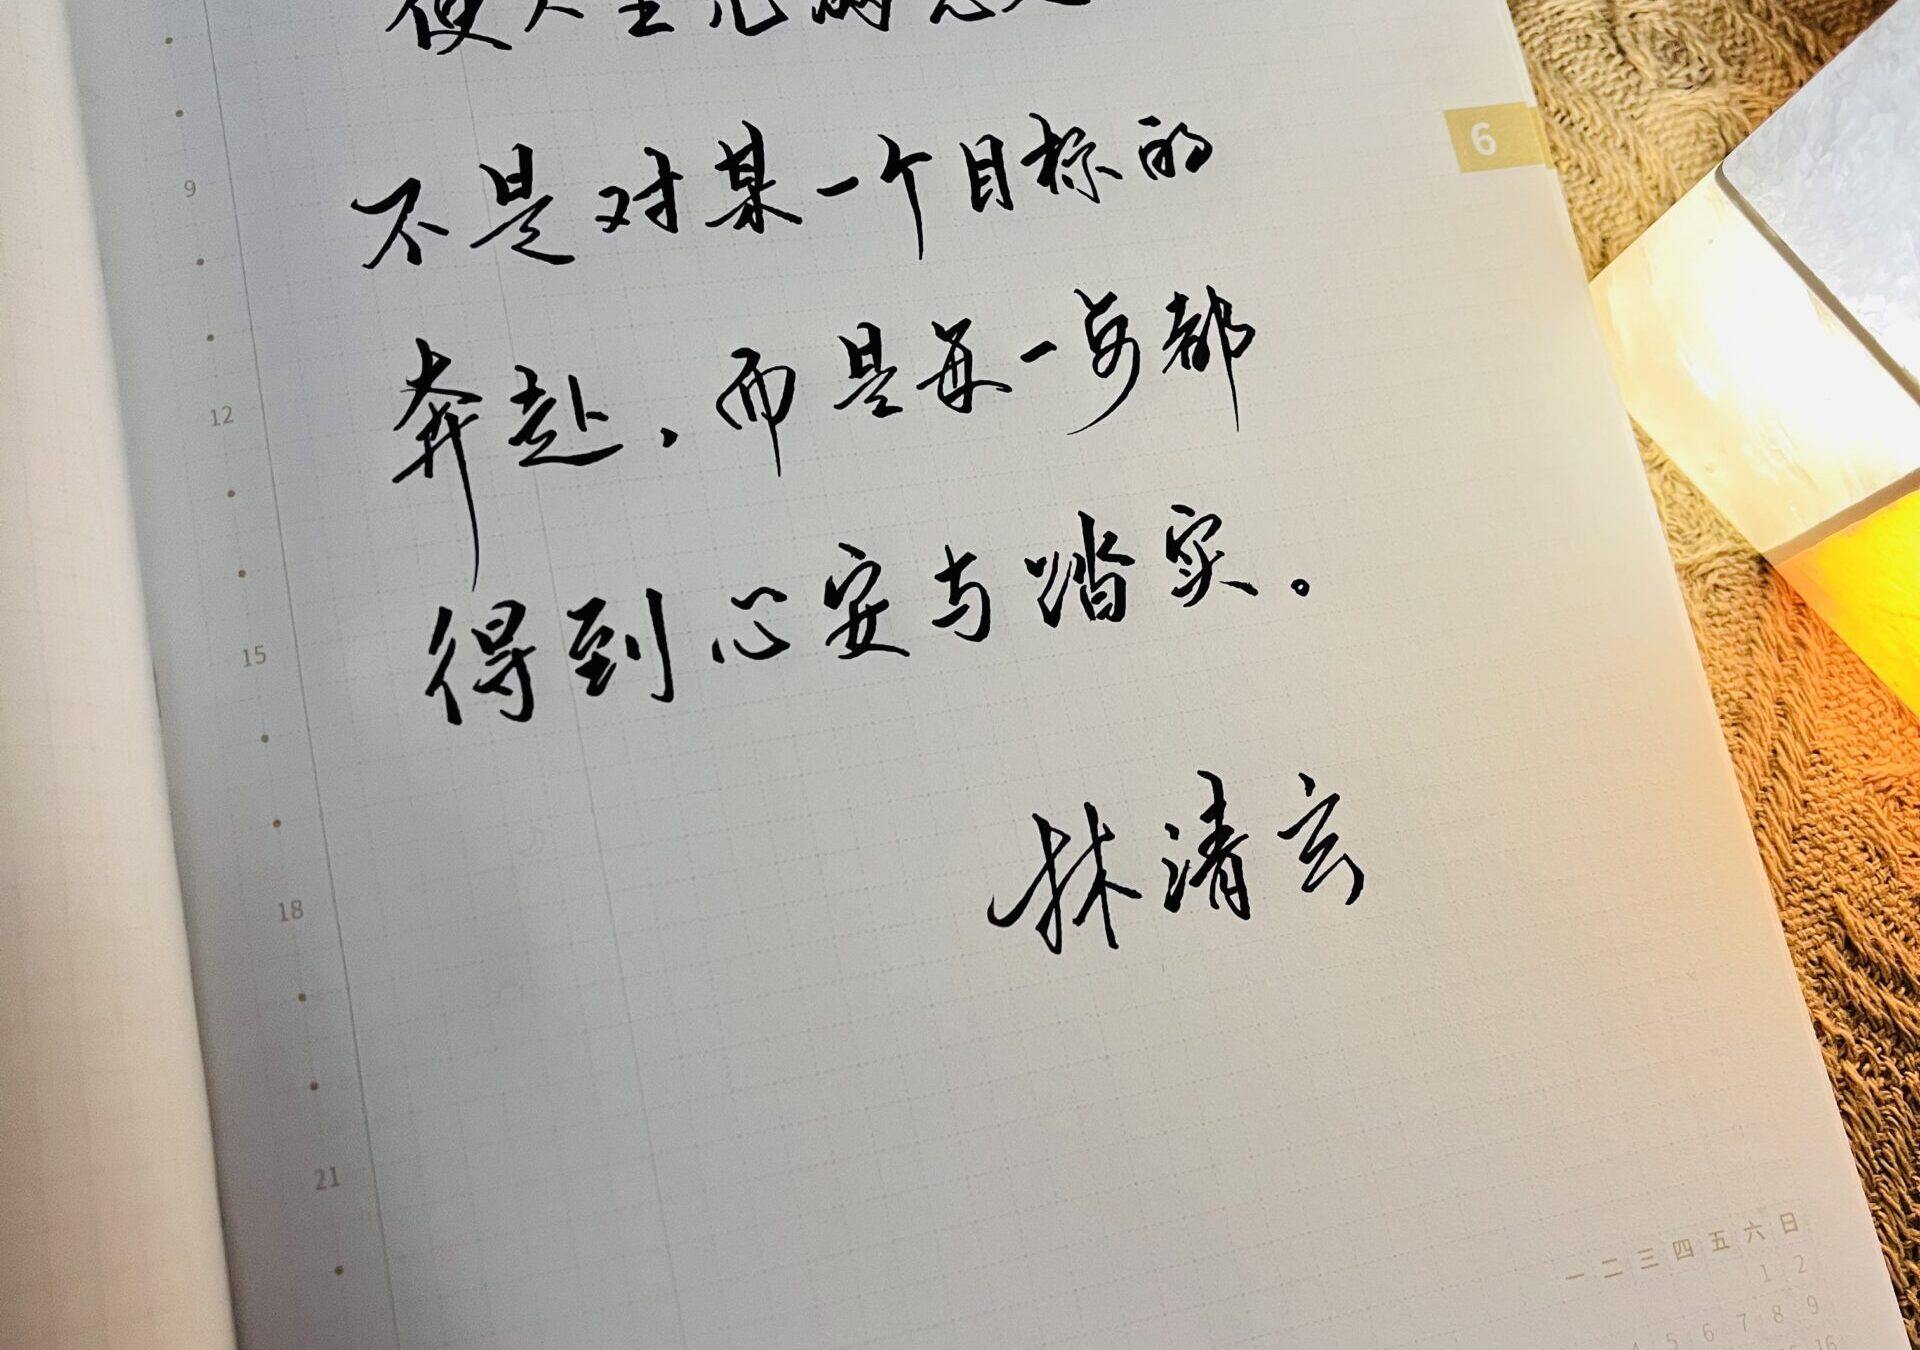 使人生
不是对某一个目标的
6
9
奔赴，而是每一步都
12
得到心安与踏实。
15
林清玄
18
21
一 二 三 四 五 六 日
1 2
4 5 6 7 8 9
16